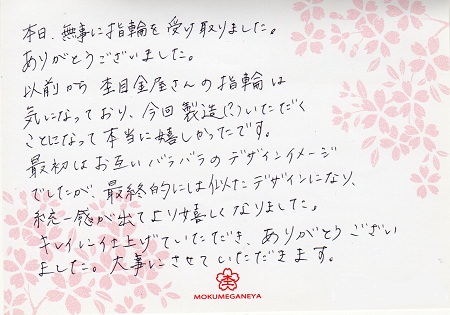 本日、無事に指輪を受け取りました。
ありがとうございました。
以前から杢目金屋さんの指輪は
気になっており、今回製造(?)いただく
ことになって本当に嬉しかったです。
最初はお互いバラバラのデザインイメージ
でしたが、最終的には似たデザインになり、
統一感が出てより嬉しくなりました。
キレイに仕上げていただき、ありがとうござい
ました。大事にさせていただきます。
杢
MOKUMEGANEYA